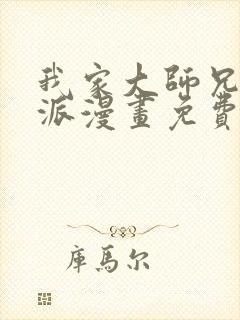 我家大師兄
派漫畫免費
庫馬尔